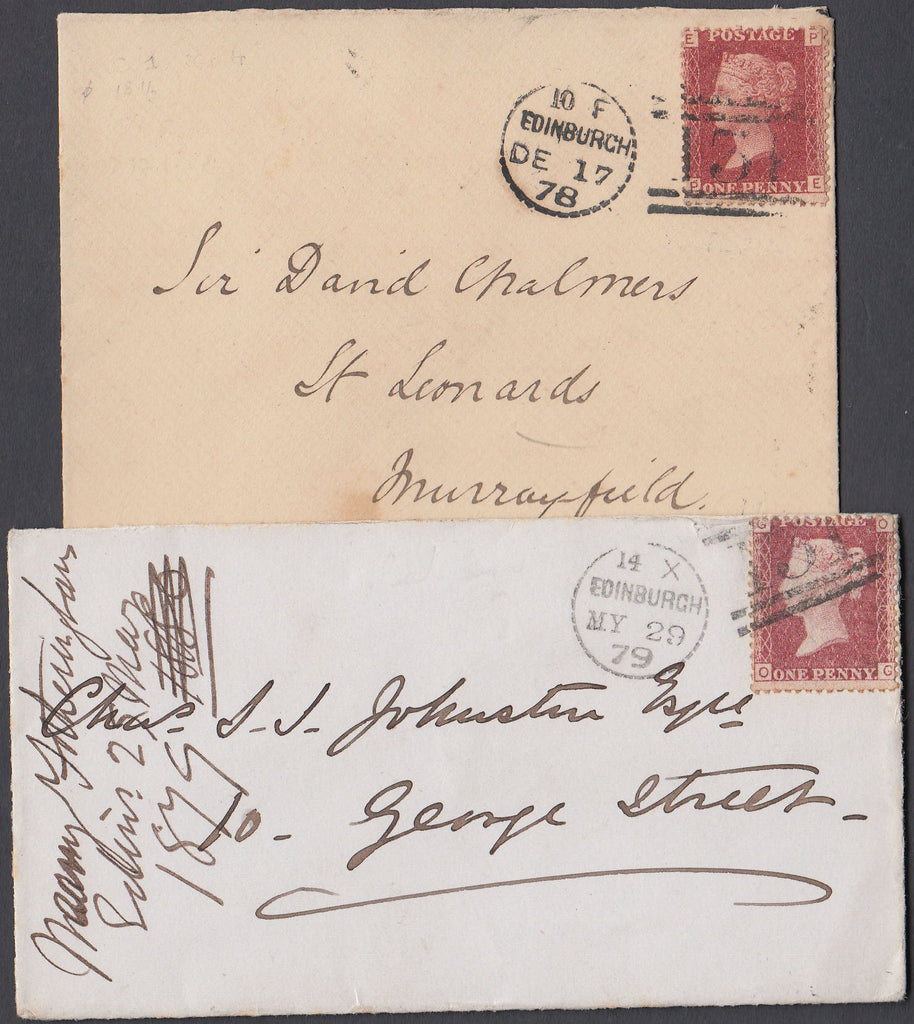 E POSTAGE P
10 F
EDINBURGH
DE 17
78
131
ONE PENNY E
Sir David Chalmers
St Leonards
Murrayfield.
G POSTAGE O
14 X
EDINBURGH
MY 29
79
131
O ONE PENNY G
Chas S. S. Johnston Esqre
10 - George Street -
Edinr 29 May
1879